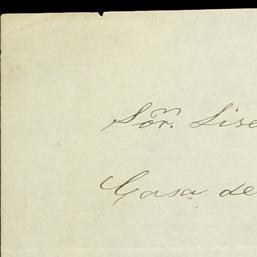 Sõr. Lise
Casa de